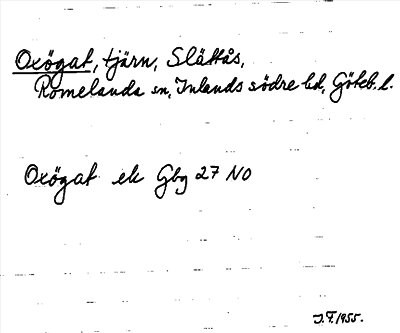 Oxögat, tjärn, Slättås,
Romelanda sn, Inlands södre hd, Göteb. l.
Oxögat ek Gbg 27 NO
J.F. 1955.